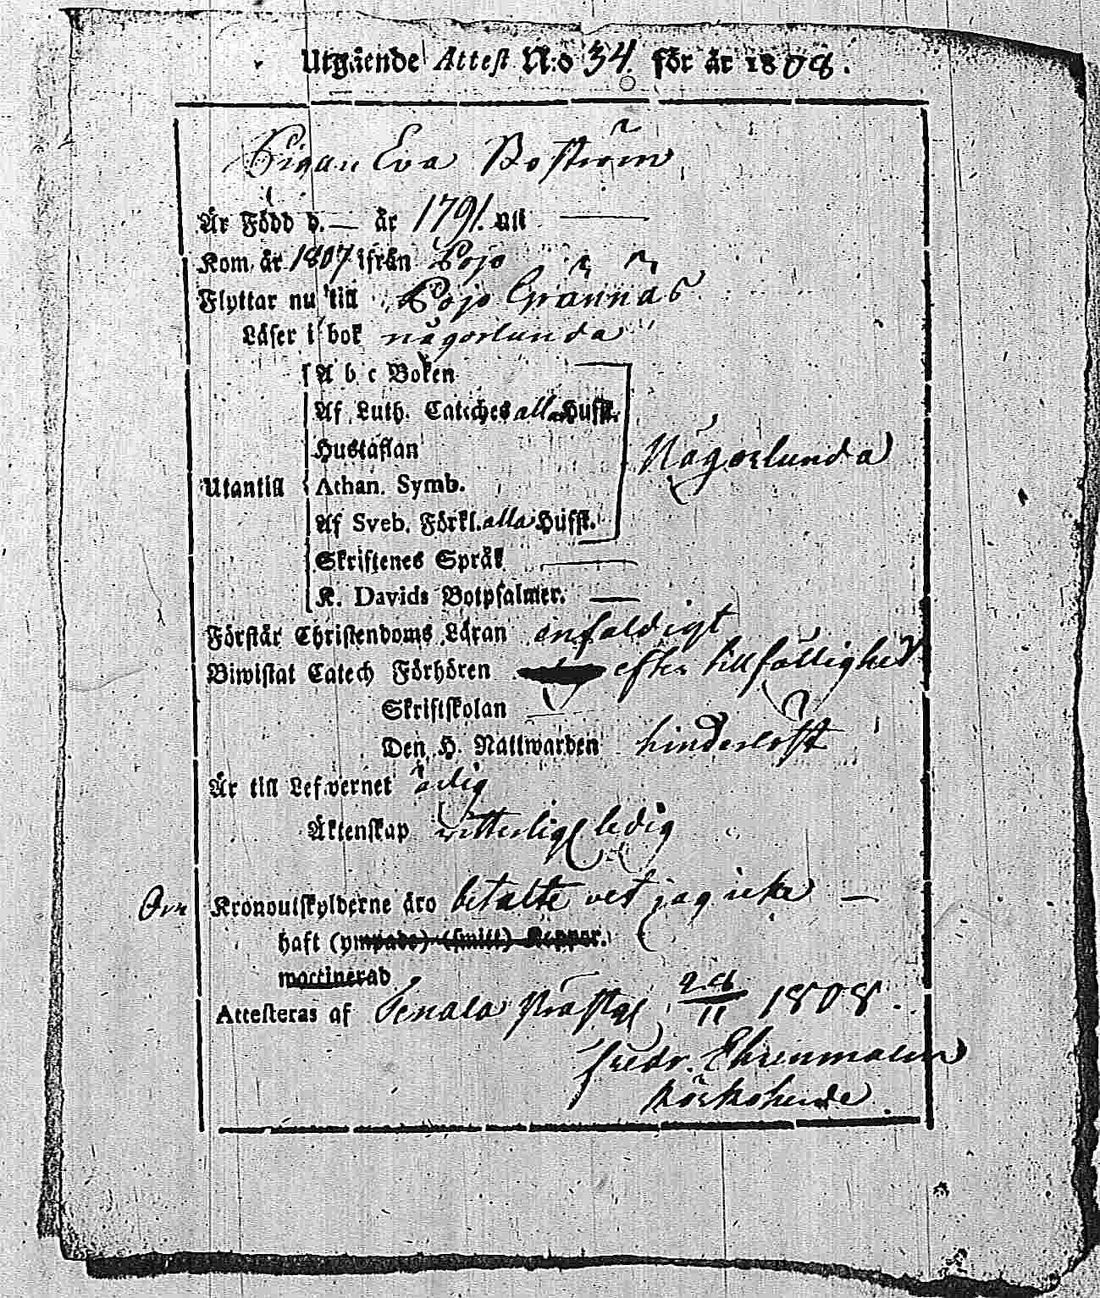 Utgående Attest N:o 34 för år 1808.
Pigan Eva Boström
Är Född d. — år 1791. uti —
Kom år 1807 ifrån Pojo
Flyttar nu till Pojo Grännäs
Läser i bok någorlunda
A b c Boken
Af Luth. Cateches alla Hufst.
Hustaflan
Någorlunda
Utantill Athan. Symb.
Af Sveb. Förkl. alla Hufst.
Skriftenes Språk —
K. Davids Botpsalmer. —
Förstår Christendoms Läran enfaldigt
Biwistat Catech Förhören efter tillfällighet
Skriftskolan —
Den H. Nattwarden hinderlöst
Är till Lefvernet ärlig
Äktenskap ledig
Om Kronoutskylderne äro betalte vet jag icke —
haft (ympade) (smitt) Koppor.
vaccinerad
Attesteras af Tenala Prästg 28/11 1808.
Fredr. Ehrenmalm
Kÿrkoherde.